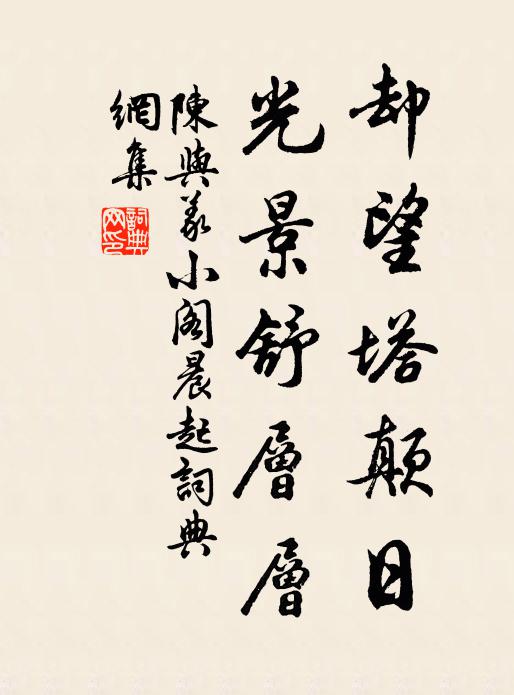 却望塔颠日
光景舒層層
陳與義小阁晨起詞典
網集
詞典网印